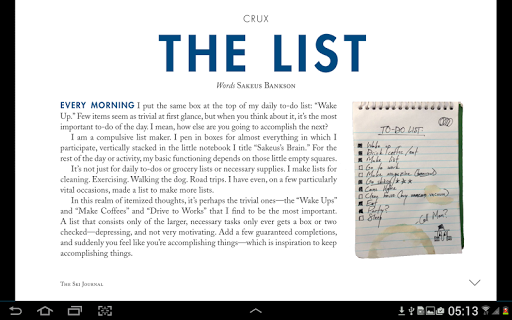 CRUX
THE LIST
Words SAKEUS BANKSON
EVERY MORNING I put the same box at the top of my daily to-do list: “Wake
Up.” Few items seem as trivial at first glance, but when you think about it, it’s the most
important to-do of the day. I mean, how else are you going to accomplish the next?
I am a compulsive list maker. I pen in boxes for almost everything in which I
participate, vertically stacked in the little notebook I title “Sakeus’s Brain.” For the
rest of the day or activity, my basic functioning depends on those little empty squares.
It’s not just for daily to-dos or grocery lists or necessary supplies. I make lists for
cleaning. Exercising. Walking the dog. Road trips. I have even, on a few particularly
vital occasions, made a list to make more lists.
In this realm of itemized thoughts, it’s perhaps the trivial ones—the “Wake Ups”
and “Make Coffees” and “Drive to Works” that I find to be the most important.
A list that consists only of the larger, necessary tasks only ever gets a box or two
checked—depressing, and not very motivating. Add a few guaranteed completions,
and suddenly you feel like you’re accomplishing things—which is inspiration to keep
accomplishing things.
TO-DO LIST:
Wake up
Drink coffee
Make list
Go to work
Make magazine
Come home
Eat
Party?
Sleep
Call Mom?
THE SKI JOURNAL
05:13